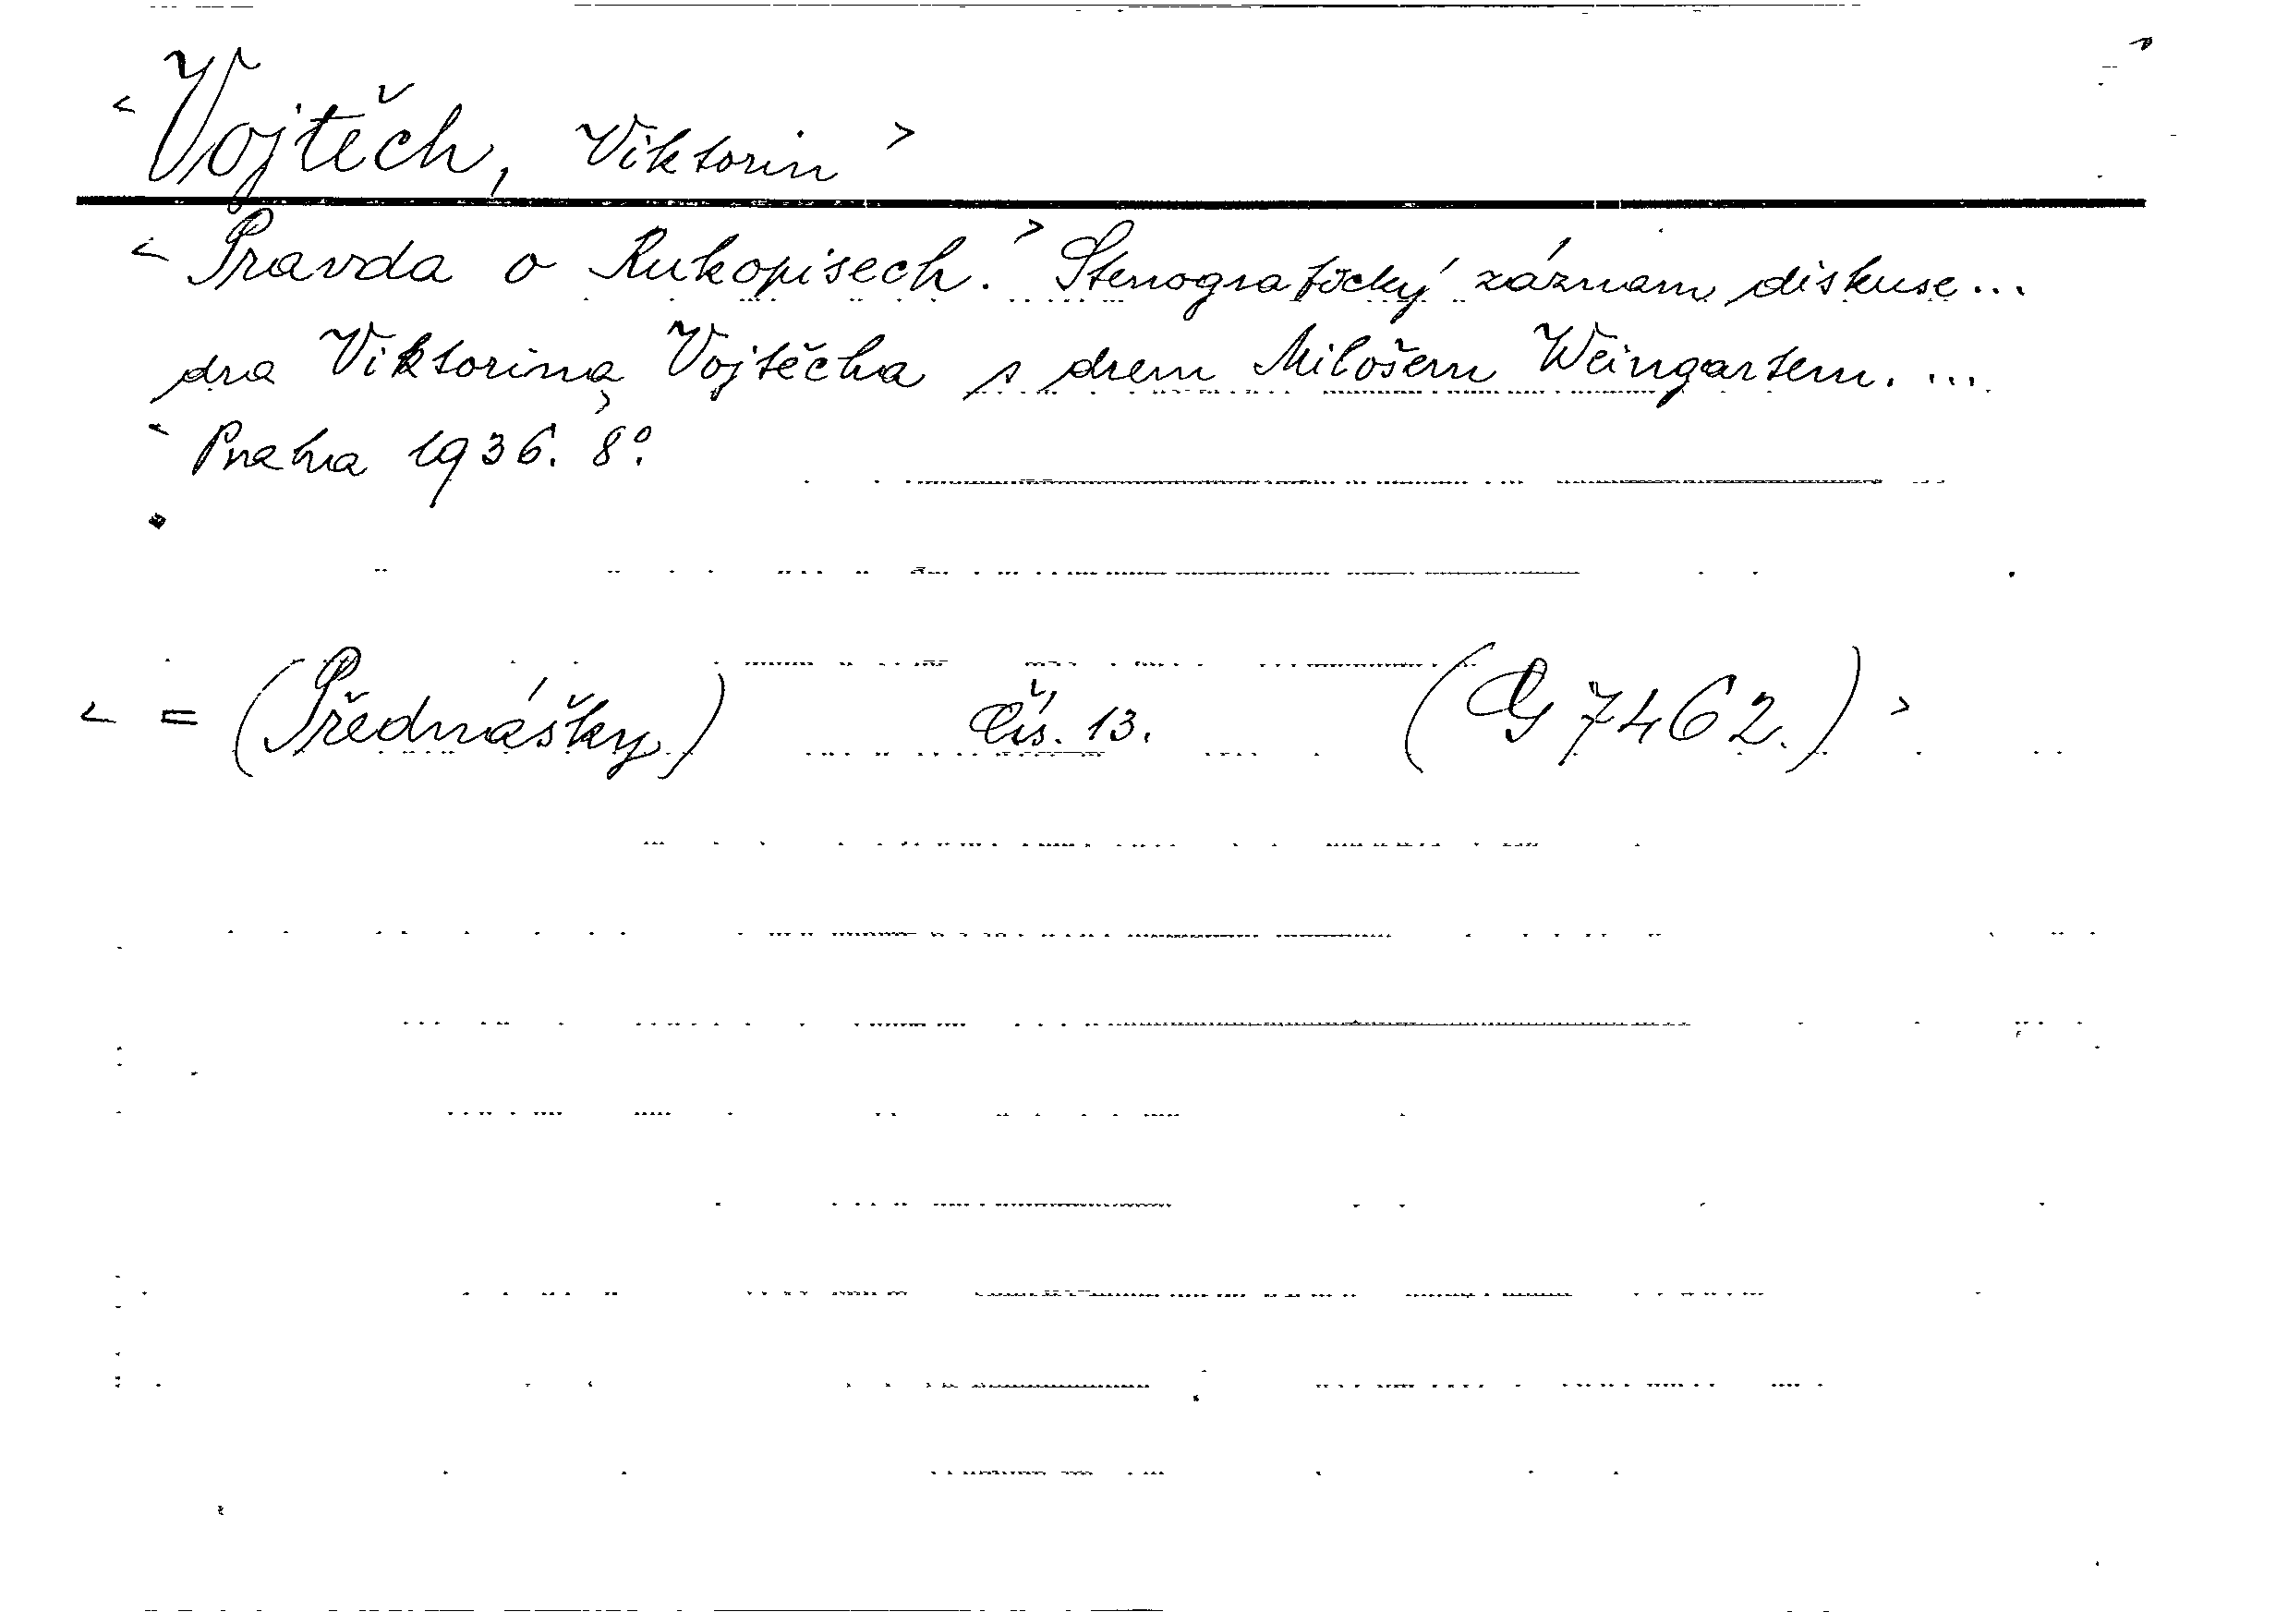 < Vojtěch, Viktorin >
< Pravda o Rukopisech. > Stenografický záznam diskuse...
dra Viktorina Vojtěcha s drem Milošem Weingartem. ...
< Praha 1936. 8°.
< = (Přednášky) Čís. 13. (G 7462.) >